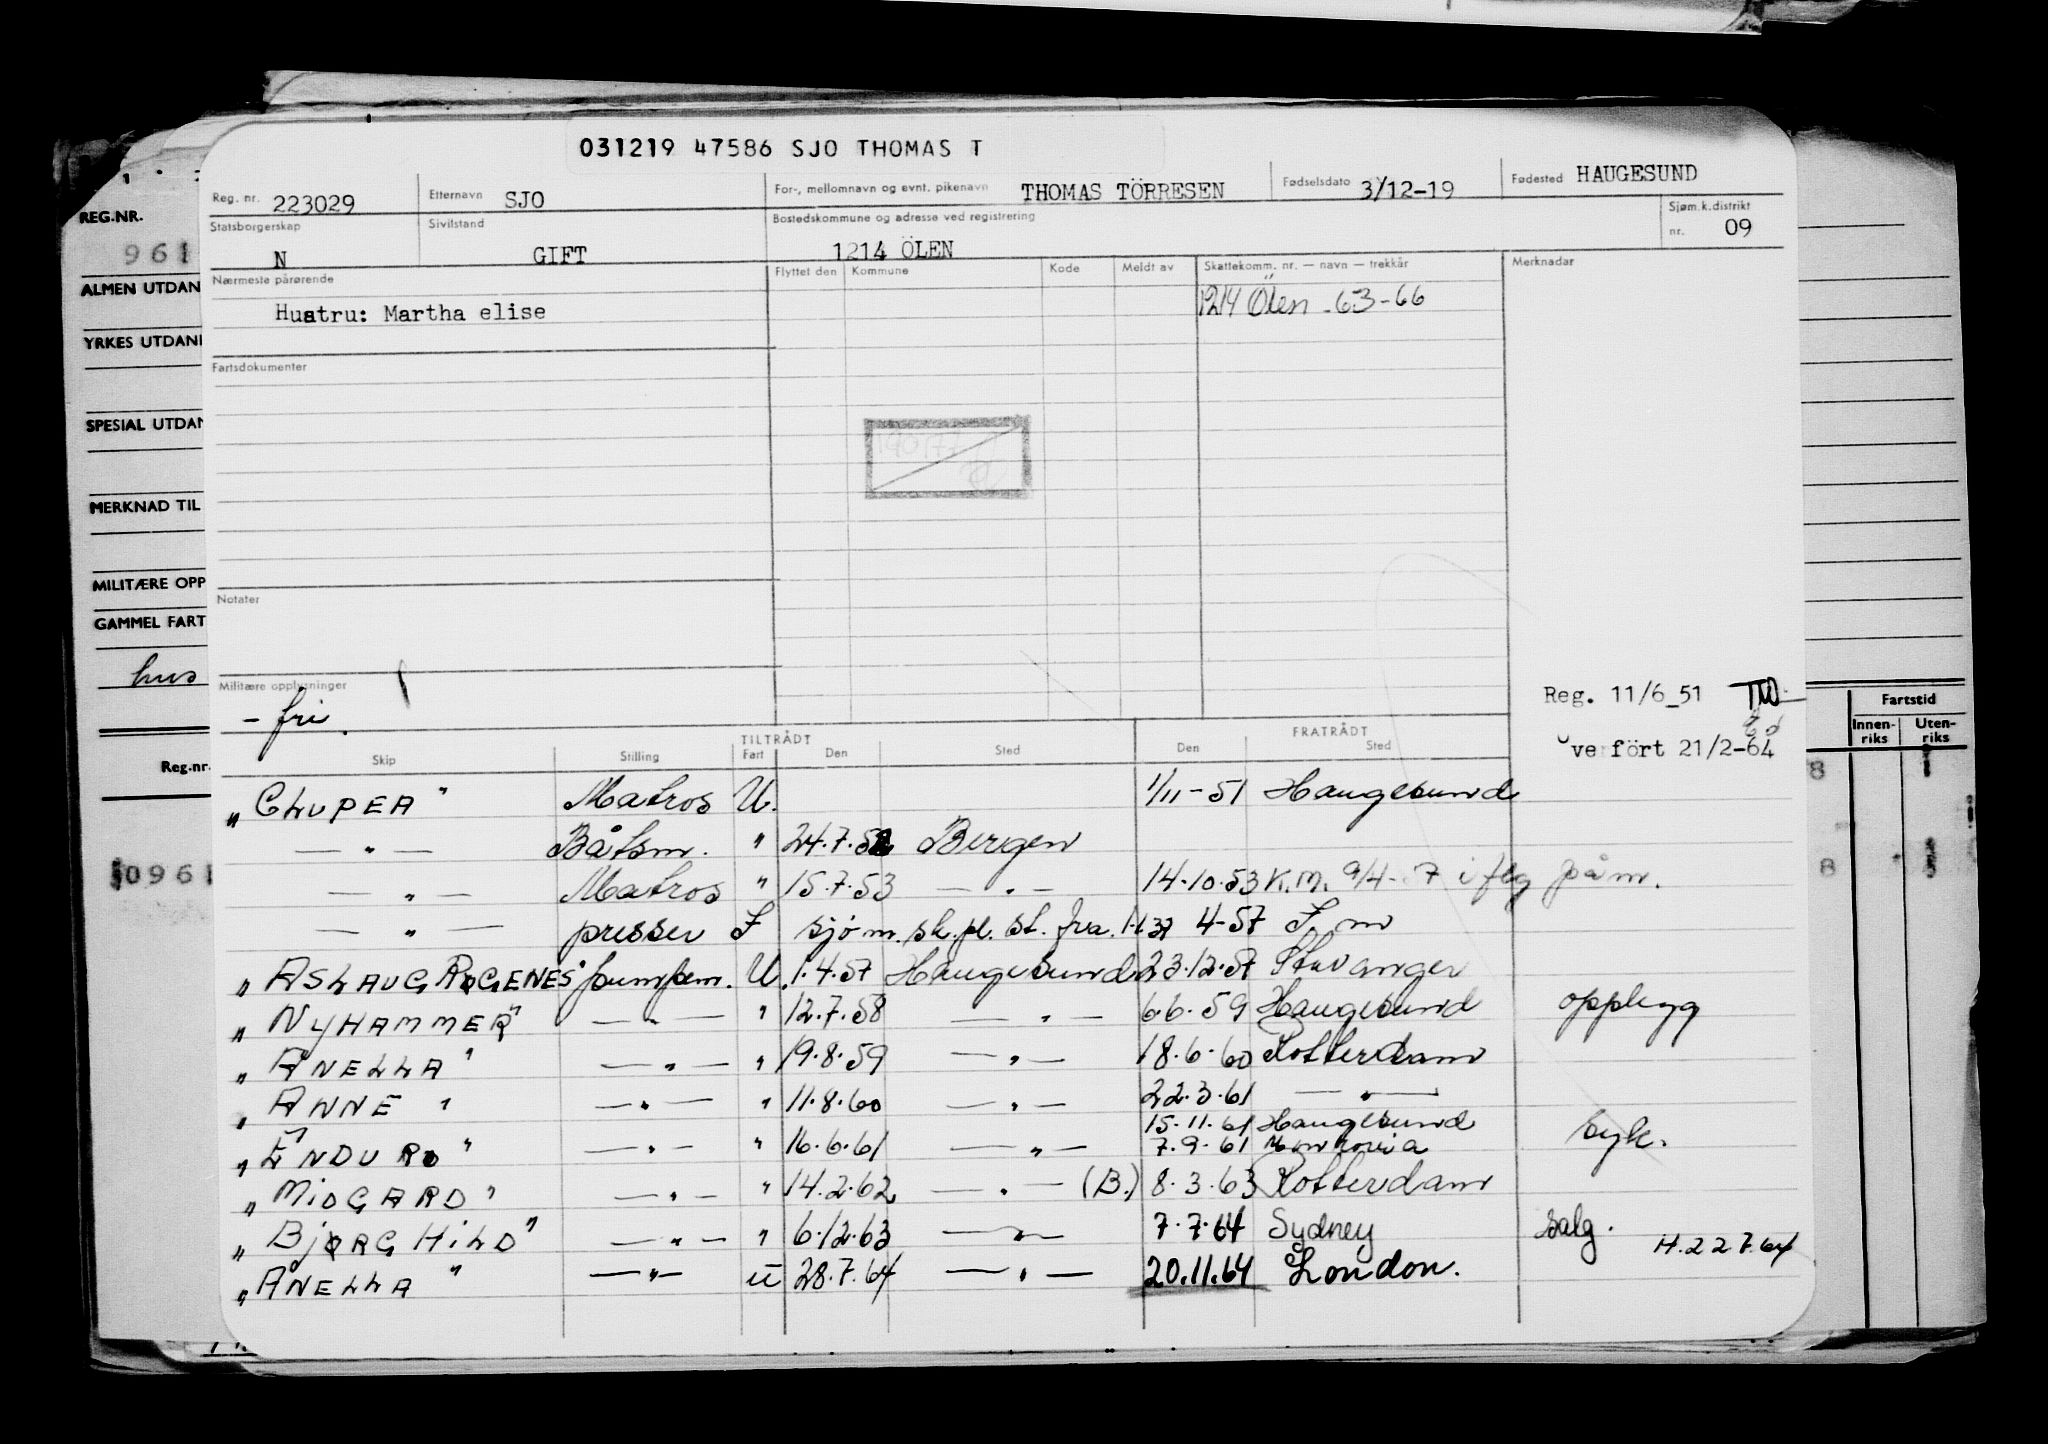 031219 47586 SJO THOMAS T
Reg. nr. 223029 Etternavn SJO For-, mellomnavn og evnt. pikenavn THOMAS TÖRRESEN Fødselsdato 3/12-19 Fødested HAUGESUND
Statsborgerskap N Sivilstand GIFT Bostedskommune og adresse ved registrering 1214 ÖLEN Sjøm.k.distrikt nr. 09
Nærmeste pårørende Flyttet den Kommune Kode Meldt av Skattekomm. nr. — navn — trekkår Merknader
Hustru: Martha elise 1214 Ölen - 63-66
Fartsdokumenter
Notater
Militære opplysninger
- fri.
Reg. 11/6_51
verfört 21/2-64
TILTRÅDT FRATRÅDT
Skip Stilling Fart Den Sted Den Sted
"CLUPEA" Matros U. 1/11-51 Haugesund
— " — Båtsm. " 24.7.52 Bergen
— " — Matros " 15.7.53 — " — 14.10.53 K.M. 9/4- 7 iflg påm.
— " — presser F sjøm. sk.pl. st. fra. 4-57
"ASLAUG ROGENES" pumpem. U. 1.4.57 Haugesund 23.12.57 Stavanger
"NYHAMMER" — " — " 12.7.58 — " — 6.6.59 Haugesund opplegg
"ANELLA" — " — " 19.8.59 — " — 18.6.60 Rotterdam
"ANNE" — " — " 11.8.60 — " — 22.3.61 — " —
15.11.61 Haugesund
"ENDURO" — " — " 16.6.61 — " — 7.9.61 Monrovia syk.
"MIDGARD" — " — " 14.2.62 — " — (B.) 8.3.63 Rotterdam
"BJØRGHILD" — " — " 6.12.63 — " — 7.7.64 Sydney salg. H.22.7.64
"ANELLA" — " — U 28.7.64 — " — 20.11.64 London.
REG.NR.
961
ALMEN UTDAN
YRKES UTDAN
SPESIAL UTDAN
MERKNAD TIL
MILITÆRE OPP
GAMMEL FART
hus
Reg.nr.
096
Fartstid
Innen-riks Uten-riks
8
8